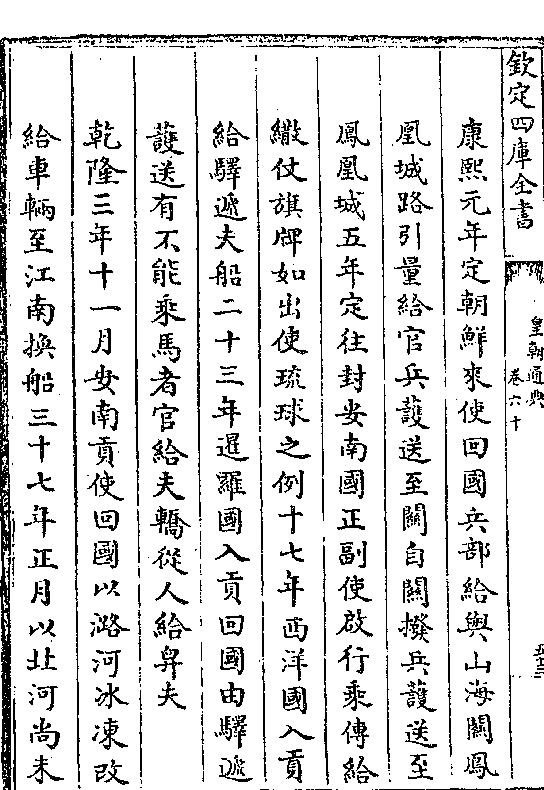 欽定四庫全書
皇朝通典
卷六十
康熙元年定朝鮮來使回國兵部給與山海關鳳
凰城路引量給官兵䕶送至關自關撥兵䕶送至
鳳凰城五年定往封安南國正副使啟行乘傳給
繖仗旗牌如出使琉球之例十七年西洋國入貢
給驛遞夫船二十三年暹羅國入貢回國由驛遞
䕶送有不能乘馬者官給夫轎從人給舁夫
乾隆三年十一月安南貢使回國以潞河冰凍改
給車輛至江南換船三十七年正月以北河尚未